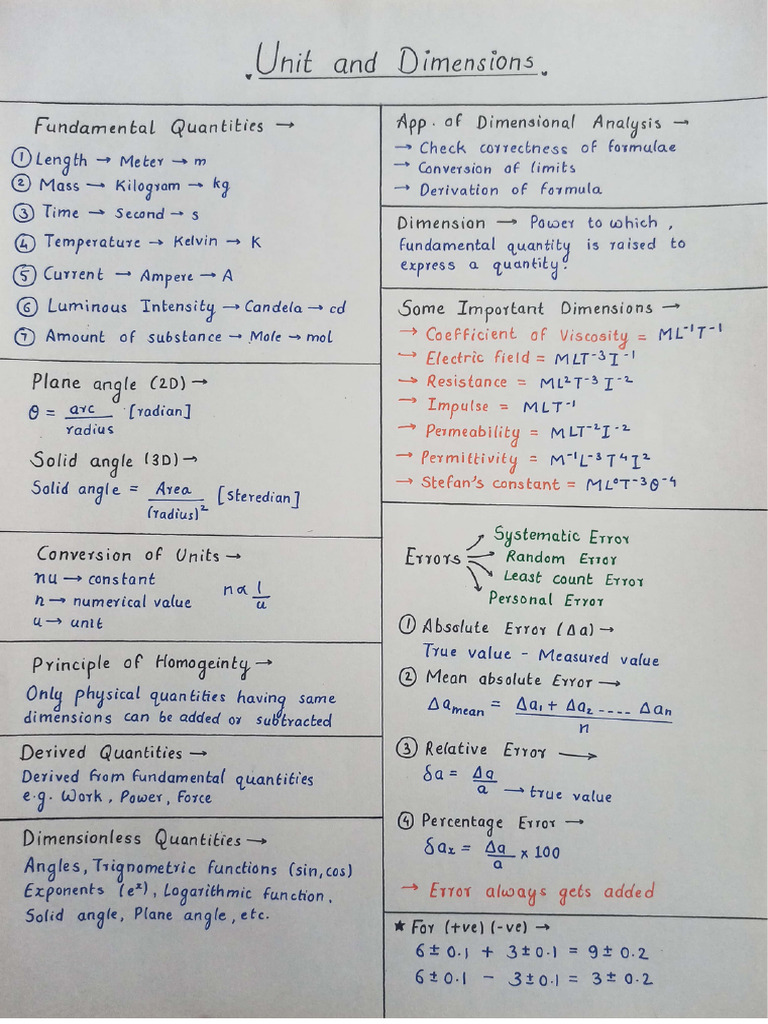 Unit and Dimensions
Fundamental Quantities →
① Length → Meter → m
② Mass → Kilogram → kg
③ Time → Second → s
④ Temperature → Kelvin → K
⑤ Current → Ampere → A
⑥ Luminous Intensity → Candela → cd
⑦ Amount of substance → Mole → mol
Plane angle (2D) →
θ = arc/radius [radian]
Solid angle (3D) →
Solid angle = Area/(radius)² [steredian]
Conversion of Units →
nu → constant
n → numerical value n ∝ 1/u
u → unit
Principle of Homogeinty →
Only physical quantities having same
dimensions can be added or subtracted
Derived Quantities →
Derived from fundamental quantities
e.g. Work, Power, Force
Dimensionless Quantities →
Angles, Trignometric functions (sin, cos)
Exponents (eˣ), Logarithmic function,
Solid angle, Plane angle, etc.
App. of Dimensional Analysis →
→ Check correctness of formulae
→ Conversion of limits
→ Derivation of formula
Dimension → Power to which,
fundamental quantity is raised to
express a quantity.
Some Important Dimensions →
→ Coefficient of Viscosity = ML⁻¹T⁻¹
→ Electric field = MLT⁻³I⁻¹
→ Resistance = ML²T⁻³I⁻²
→ Impulse = MLT⁻¹
→ Permeability = MLT⁻²I⁻²
→ Permittivity = M⁻¹L⁻³T⁴I²
→ Stefan's constant = ML⁰T⁻³θ⁻⁴
Errors
Systematic Error
Random Error
Least count Error
Personal Error
① Absolute Error (Δa) →
True value - Measured value
② Mean absolute Error →
Δa mean = Δa₁ + Δa₂ ---- Δan / n
③ Relative Error →
δa = Δa/a → true value
④ Percentage Error →
δa% = Δa/a × 100
→ Error always gets added
★ For (+ve) (-ve) →
6 ± 0.1 + 3 ± 0.1 = 9 ± 0.2
6 ± 0.1 - 3 ± 0.1 = 3 ± 0.2